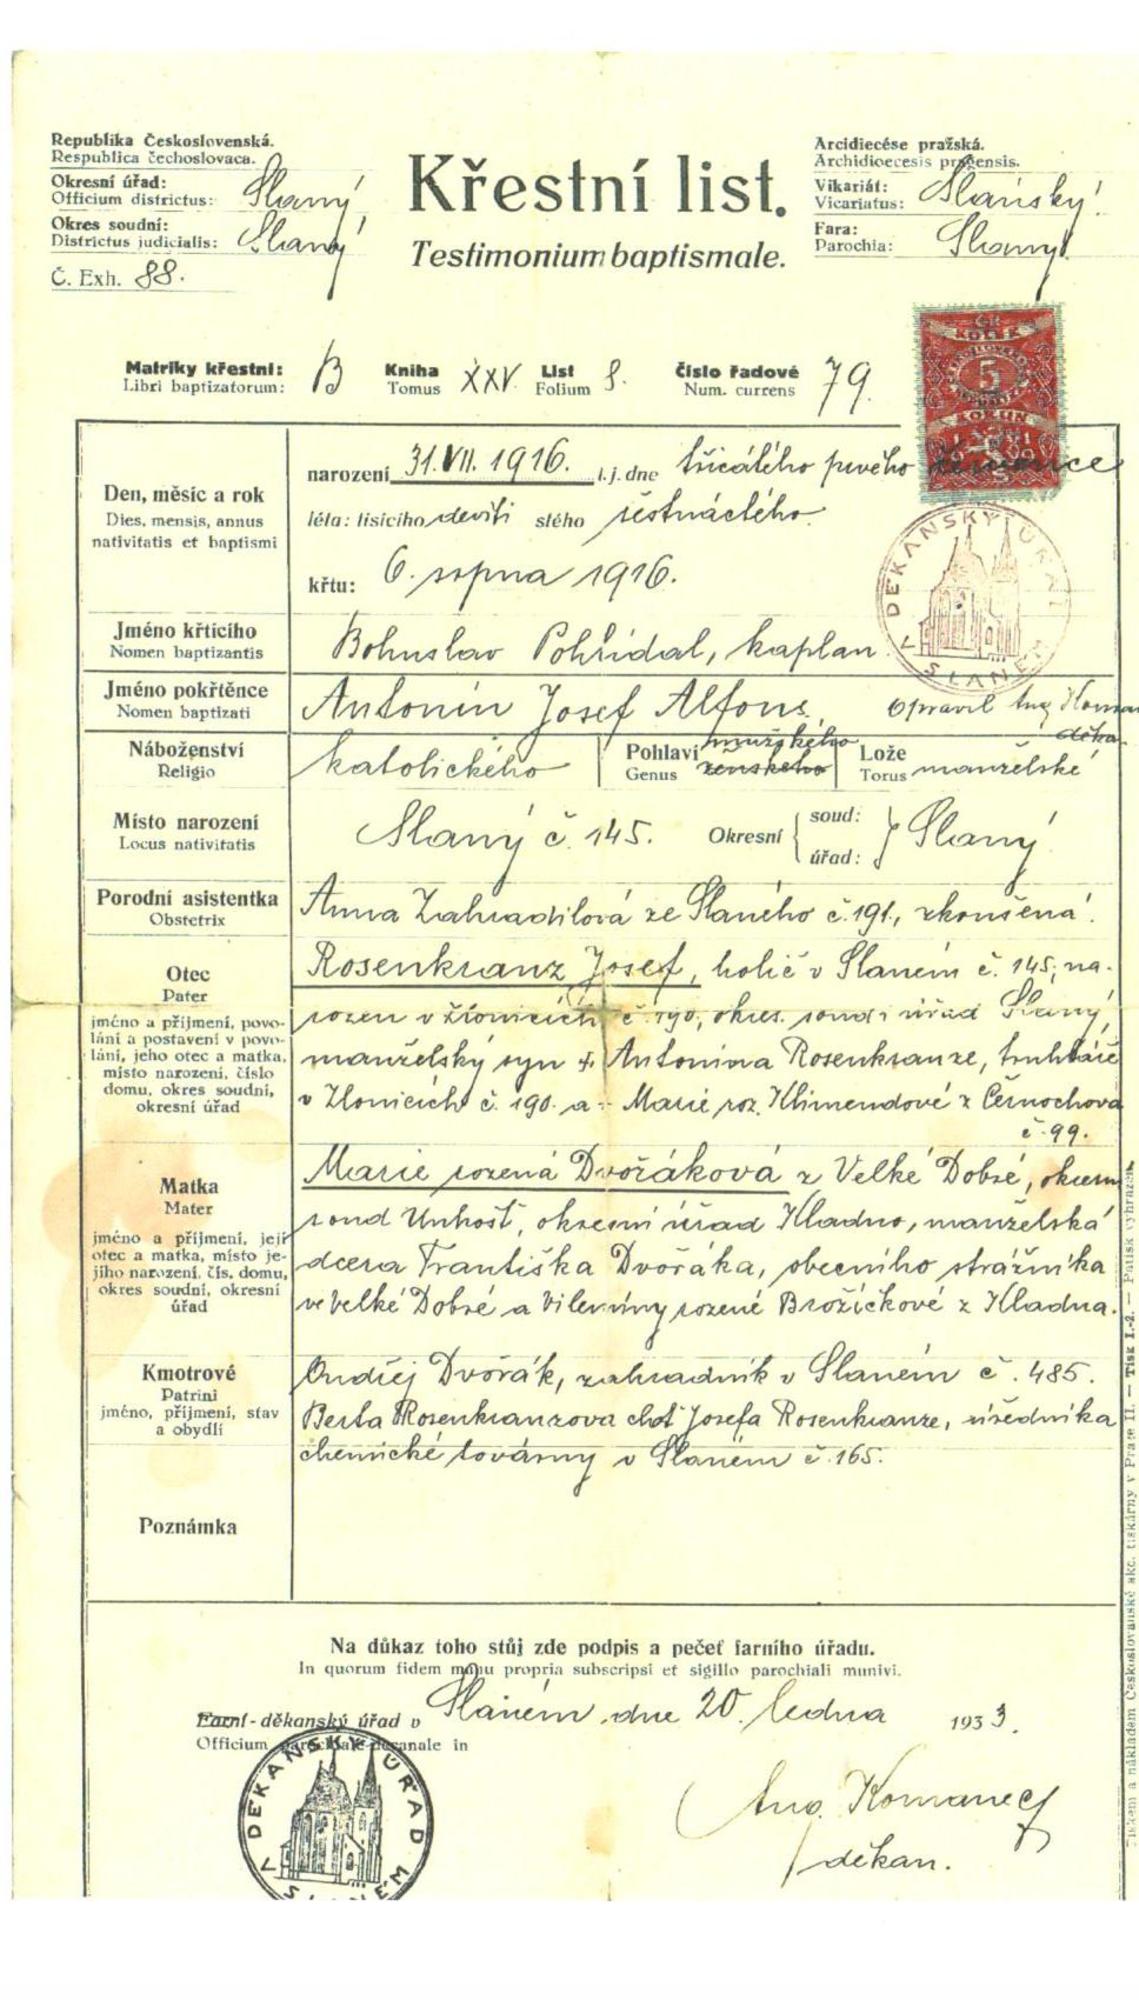 Republika Československá.
Respublica čechoslovaca.
Okresní úřad: Slaný
Officium districtus:
Okres soudní: Slaný
Districtus judicialis:
Č. Exh. 88.
Křestní list.
Testimonium baptismale.
Arcidiecése pražská.
Archidioecesis pragensis.
Vikariát: Slánský
Vicariatus:
Fara: Slaný
Parochia:
Matriky křestní: B Kniha XXV List 8. číslo řadové 79.
Libri baptizatorum: Tomus Folium Num. currens
KOLEK
5
KORUN
Den, měsíc a rok
Dies, mensis, annus
nativitatis et baptismi
narození 31. VII. 1916. t. j. dne třicátého prvého července
léta: tisícího devíti stého šestnáctého
křtu: 6. srpna 1916.
DĚKANSKÝ ÚŘAD V SLANÉM
Jméno křtícího
Nomen baptizantis
Bohuslav Pohřídal, kaplan
Jméno pokřtěnce
Nomen baptizati
Antonín Josef Alfons opravil Aug. Koman
děkan
Náboženství
Religio
katolického
Pohlaví mužského
Genus ženského
Lože
Torus manželské
Místo narození
Locus nativitatis
Slaný č. 145. Okresní { soud: úřad: } Slaný
Porodní asistentka
Obstetrix
Anna Zahradilová ze Slaného č. 191, zkoušená.
Otec
Pater
jméno a příjmení, povo-
lání a postavení v povo-
lání, jeho otec a matka,
místo narození, číslo
domu, okres soudní,
okresní úřad
Rosenkranz Josef, holič v Slaném č. 145, na-
rozen v Zlonicích č. 190, okres. soud i úřad Slaný,
manželský syn † Antonína Rosenkranze, truhláře
v Zlonicích č. 190. a Marie roz. Klimendové z Černochova
č. 99.
Matka
Mater
jméno a příjmení, její
otec a matka, místo je-
jího narození, čís. domu,
okres soudní, okresní
úřad
Marie rozená Dvořáková z Velké Dobré, okresní
soud Unhošť, okresní úřad Kladno, manželská
dcera Františka Dvořáka, obecního strážníka
ve Velké Dobré a Vilemíny rozené Brožíčkové z Kladna.
Kmotrové
Patrini
jméno, příjmení, stav
a obydlí
Ondřej Dvořák, zahradník v Slaném č. 485.
Berta Rosenkranzova choť Josefa Rosenkranze, úředníka
chemické továrny v Slaném č. 165.
Poznámka
Na důkaz toho stůj zde podpis a pečeť farního úřadu.
In quorum fidem manu propria subscripsi et sigillo parochiali munivi.
Farní - děkanský úřad v Slaném, dne 20. ledna 1933.
Officium parochiale-decanale in
DĚKANSKÝ ÚŘAD V SLANÉM
Aug. Komanec
děkan.
nákladem Československé akc. tiskárny v Praze II. — Tisk I.-2. — Patisk vyhrazen.